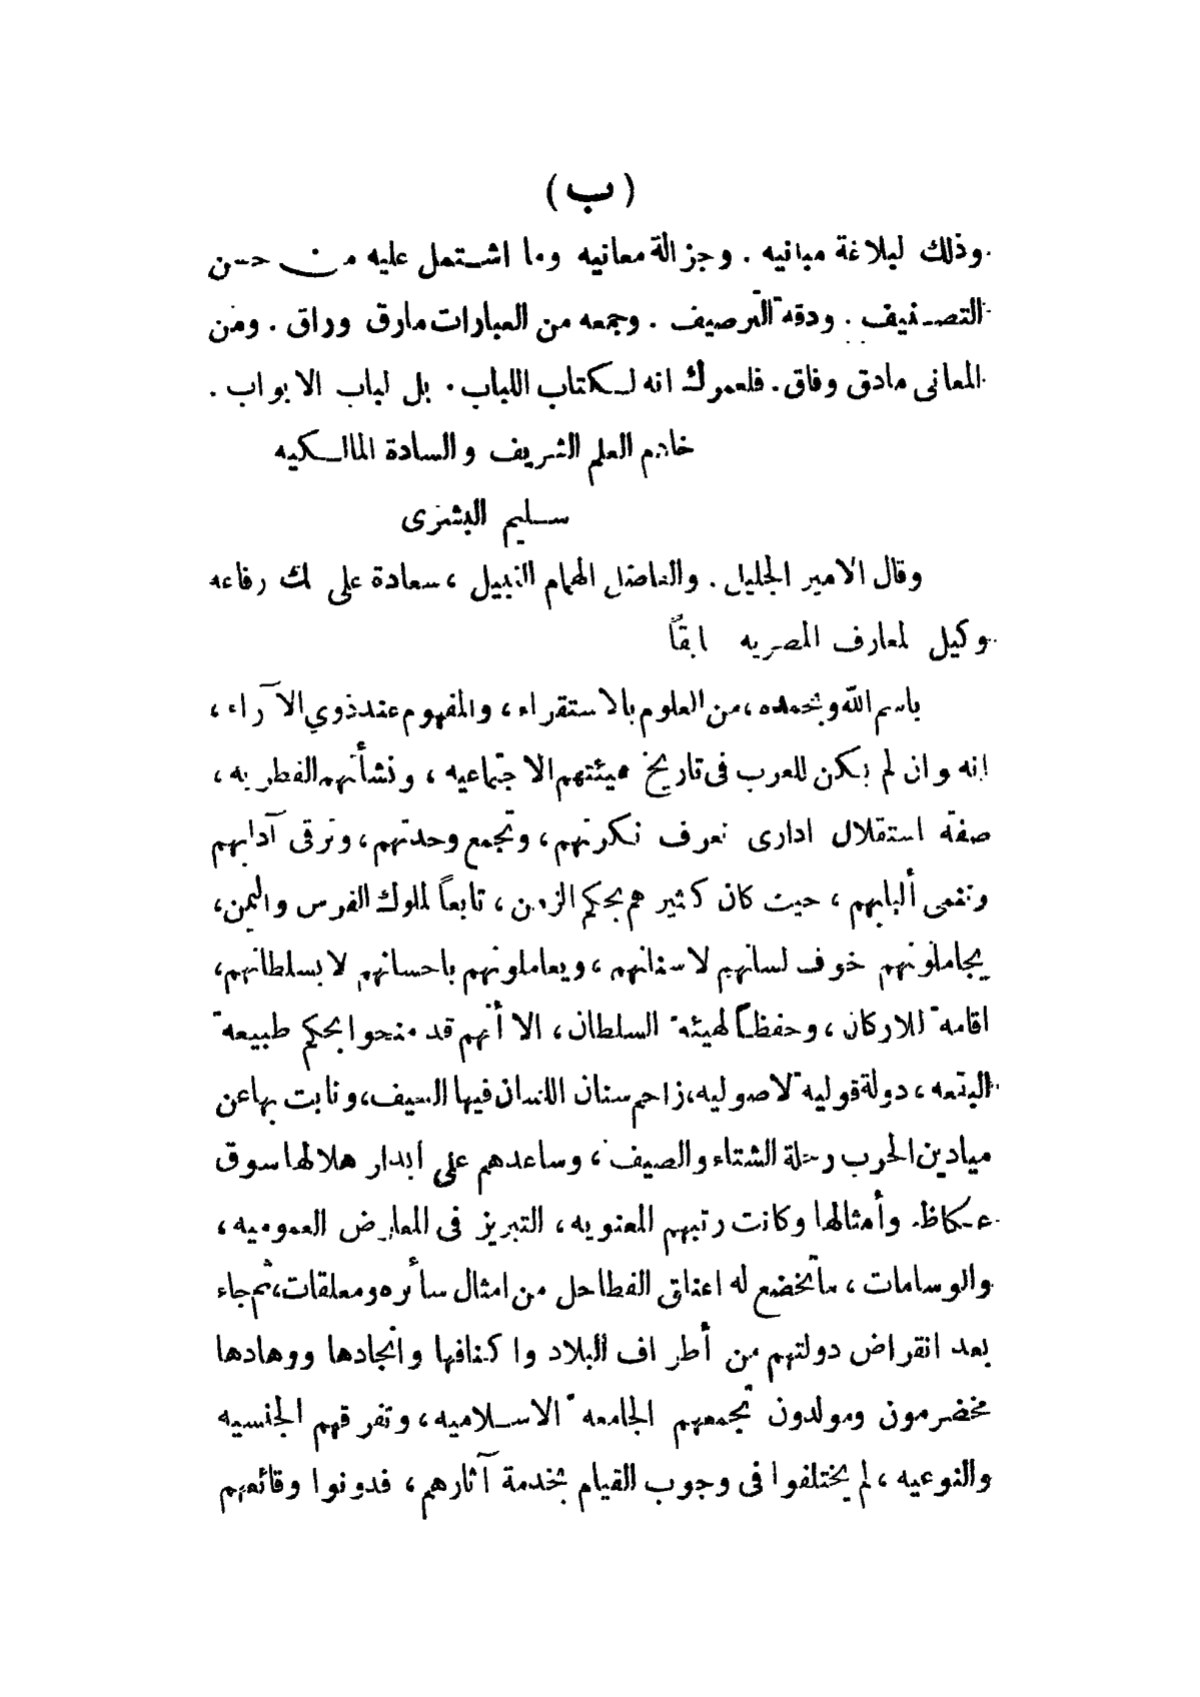 (ب)
وذلك لبلاغة مبانيه . وجزالة معانيه وما اشتمل عليه من حسن
التصنيف . ودقة الترصيف . وجمعه من العبارات مارق وراق . ومن
المعانى مادق وفاق . فلعمرك انه لكتاب اللباب . بل لباب الابواب .
خادم العلم الشريف والسادة المالكيه
سليم البشرى
وقال الامير الجليل . والفاضل الهمام النبيل ، سعادة على بك رفاعه
وكيل المعارف المصريه سابقاً
باسم الله وبحمده ، من العلوم بالاستقراء ، والمفهوم عند ذوي الآراء ،
انه وان لم يكن للعرب فى تاريخ هيئتهم الاجتماعيه ، ونشأتهم الفطريه ،
صفة استقلال ادارى تعرف نكرتهم ، وتجمع وحدتهم ، وترقى آدابهم
وتنمى ألبابهم ، حيث كان كثير هم بحكم الزمن ، تابعاً لملوك الفرس واليمن ،
يجاملونهم خوف لسانهم لاسنانهم ، ويعاملونهم باحسانهم لا بسلطانهم ،
اقامة للاركان ، وحفظاً لهيئة السلطان ، الا أنهم قد منحوا بحكم طبيعة
البقعه ، دولة قولية لاصوليه ، زاحم سنان اللسان فيها السيف ، ونابت بها عن
ميادين الحرب رحلة الشتاء والصيف ، وساعدهم على ابدار هلالها سوق
عكاظ وأمثالها وكانت رتبهم المعنويه ، التبريز فى المعارض العموميه ،
والوسامات ، ماتخضع له اعناق الفطاحل من امثال سائره ومعلقات ، ثم جاء
بعد انقراض دولتهم من أطراف البلاد واكنافها وانجادها ووهادها
مخضرمون ومولدون تجمعهم الجامعة الاسلاميه ، وتفرقهم الجنسيه
والنوعيه ، لم يختلفوا فى وجوب القيام بخدمة آثارهم ، فدونوا وقائعهم